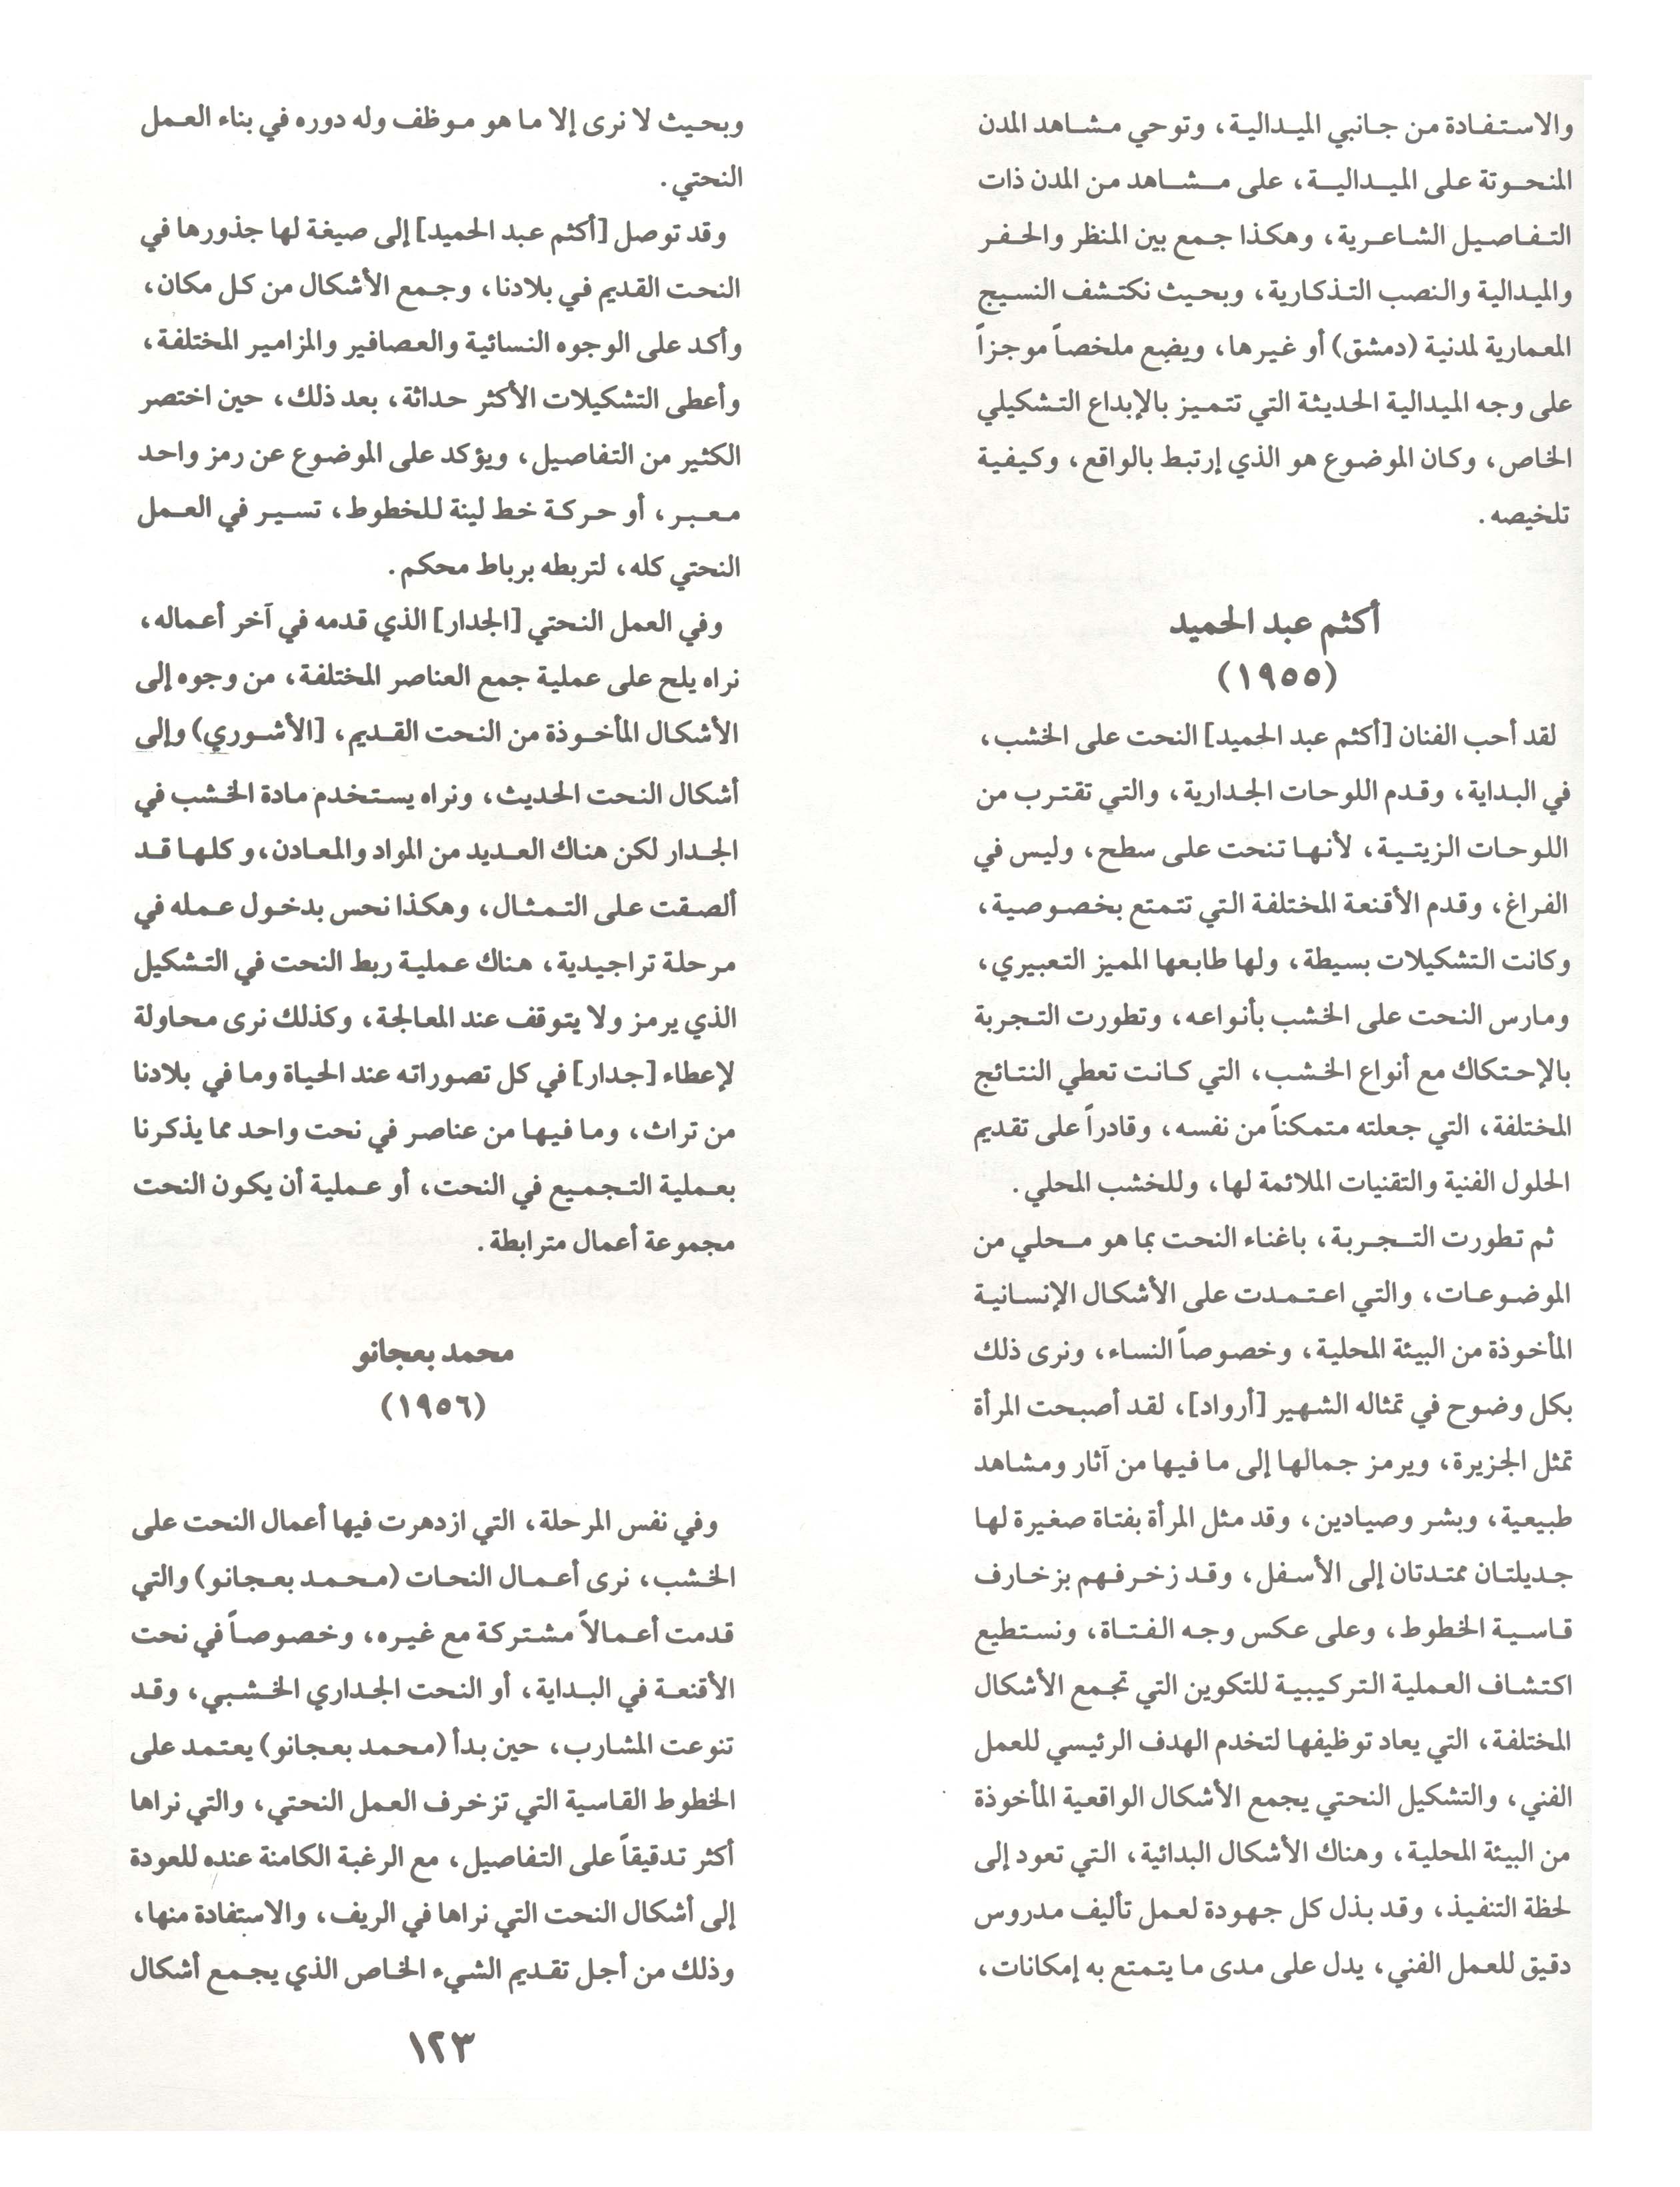 والاستفادة من جانبي الميدالية، وتوحي مشاهد المدن
المنحوتة على الميدالية، على مشاهد من المدن ذات
التفاصيل الشاعرية، وهكذا جمع بين المنظر والحفر
والميدالية والنصب التذكارية، وبحيث نكتشف النسيج
المعمارية لمدنية (دمشق) أو غيرها، ويضع ملخصاً موجزاً
على وجه الميدالية الحديثة التي تتميز بالإبداع التشكيلي
الخاص، وكان الموضوع هو الذي إرتبط بالواقع، وكيفية
تلخيصه.
أكثم عبد الحميد
(١٩٥٥)
لقد أحب الفنان [أكثم عبد الحميد] النحت على الخشب،
في البداية، وقدم اللوحات الجدارية، والتي تقترب من
اللوحات الزيتية، لأنها تنحت على سطح، وليس في
الفراغ، وقدم الأقنعة المختلفة التي تتمتع بخصوصية،
وكانت التشكيلات بسيطة، ولها طابعها المميز التعبيري،
ومارس النحت على الخشب بأنواعه، وتطورت التجربة
بالإحتكاك مع أنواع الخشب، التي كانت تعطي النتائج
المختلفة، التي جعلته متمكناً من نفسه، وقادراً على تقديم
الحلول الفنية والتقنيات الملائمة لها، وللخشب المحلي.
ثم تطورت التجربة، باغناء النحت بما هو محلي من
الموضوعات، والتي اعتمدت على الأشكال الإنسانية
المأخوذة من البيئة المحلية، وخصوصاً النساء، ونرى ذلك
بكل وضوح في تمثاله الشهير [أرواد]، لقد أصبحت المرأة
تمثل الجزيرة، ويرمز جمالها إلى ما فيها من آثار ومشاهد
طبيعية، وبشر وصيادين، وقد مثل المرأة بفتاة صغيرة لها
جديلتان ممتدتان إلى الأسفل، وقد زخرفهم بزخارف
قاسية الخطوط، وعلى عكس وجه الفتاة، ونستطيع
اكتشاف العملية التركيبية للتكوين التي تجمع الأشكال
المختلفة، التي يعاد توظيفها لتخدم الهدف الرئيسي للعمل
الفني، والتشكيل النحتي يجمع الأشكال الواقعية المأخوذة
من البيئة المحلية، وهناك الأشكال البدائية، التي تعود إلى
لحظة التنفيذ، وقد بذل كل جهودة لعمل تأليف مدروس
دقيق للعمل الفني، يدل على مدى ما يتمتع به إمكانات،
وبحيث لا نرى إلا ما هو موظف وله دوره في بناء العمل
النحتي.
وقد توصل [أكثم عبد الحميد] إلى صيغة لها جذورها في
النحت القديم في بلادنا، وجمع الأشكال من كل مكان،
وأكد على الوجوه النسائية والعصافير والمزامير المختلفة،
وأعطى التشكيلات الأكثر حداثة، بعد ذلك، حين اختصر
الكثير من التفاصيل، ويؤكد على الموضوع عن رمز واحد
معبر، أو حركة خط لينة للخطوط، تسير في العمل
النحتي كله، لتربطه برباط محكم.
وفي العمل النحتي [الجدار] الذي قدمه في آخر أعماله،
نراه يلح على عملية جمع العناصر المختلفة، من وجوه إلى
الأشكال المأخوذة من النحت القديم، [الأشوري) وإلى
أشكال النحت الحديث، ونراه يستخدم مادة الخشب في
الجدار لكن هناك العديد من المواد والمعادن، وكلها قد
ألصقت على التمثال، وهكذا نحس بدخول عمله في
مرحلة تراجيدية، هناك عملية ربط النحت في التشكيل
الذي يرمز ولا يتوقف عند المعالجة، وكذلك نرى محاولة
لإعطاء [جدار] في كل تصوراته عند الحياة وما في بلادنا
من تراث، وما فيها من عناصر في نحت واحد مما يذكرنا
بعملية التجميع في النحت، أو عملية أن يكون النحت
مجموعة أعمال مترابطة.
محمد بعجانو
(١٩٥٦)
وفي نفس المرحلة، التي ازدهرت فيها أعمال النحت على
الخشب، نرى أعمال النحات (محمد بعجانو) والتي
قدمت أعمالاً مشتركة مع غيره، وخصوصاً في نحت
الأقنعة في البداية، أو النحت الجداري الخشبي، وقد
تنوعت المشارب، حين بدأ (محمد بعجانو) يعتمد على
الخطوط القاسية التي تزخرف العمل النحتي، والتي نراها
أكثر تدقيقاً على التفاصيل، مع الرغبة الكامنة عنده للعودة
إلى أشكال النحت التي نراها في الريف، والاستفادة منها،
وذلك من أجل تقديم الشيء الخاص الذي يجمع أشكال
١٢٣